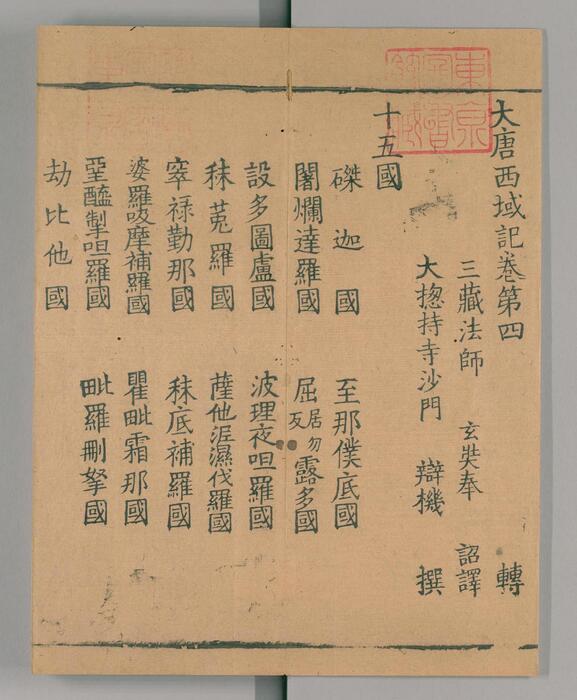 東京
大唐西域記卷第四 轉
三藏法師 玄奘奉 詔譯
大揔持寺沙門 辯機 撰
十五國
磔迦國 至那僕底國
闍爛達羅國 屈居勿反露多國
設多圖盧國 波理夜呾羅國
秣菟羅國 薩他泥濕伐羅國
窣禄勤那國 秣底補羅國
婆羅吸摩補羅國 瞿毗霜那國
堊醯掣呾羅國 毗羅刪拏國
劫比他國